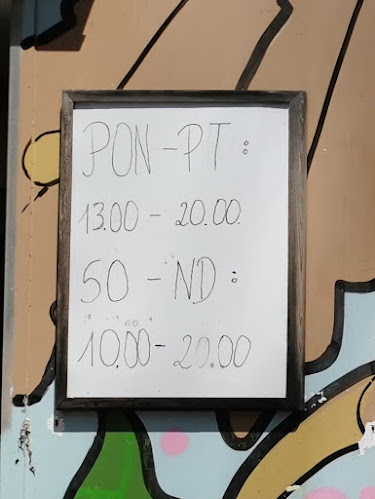 PON - PT :
13.00 - 20.00
SO - ND :
10.00 - 20.00